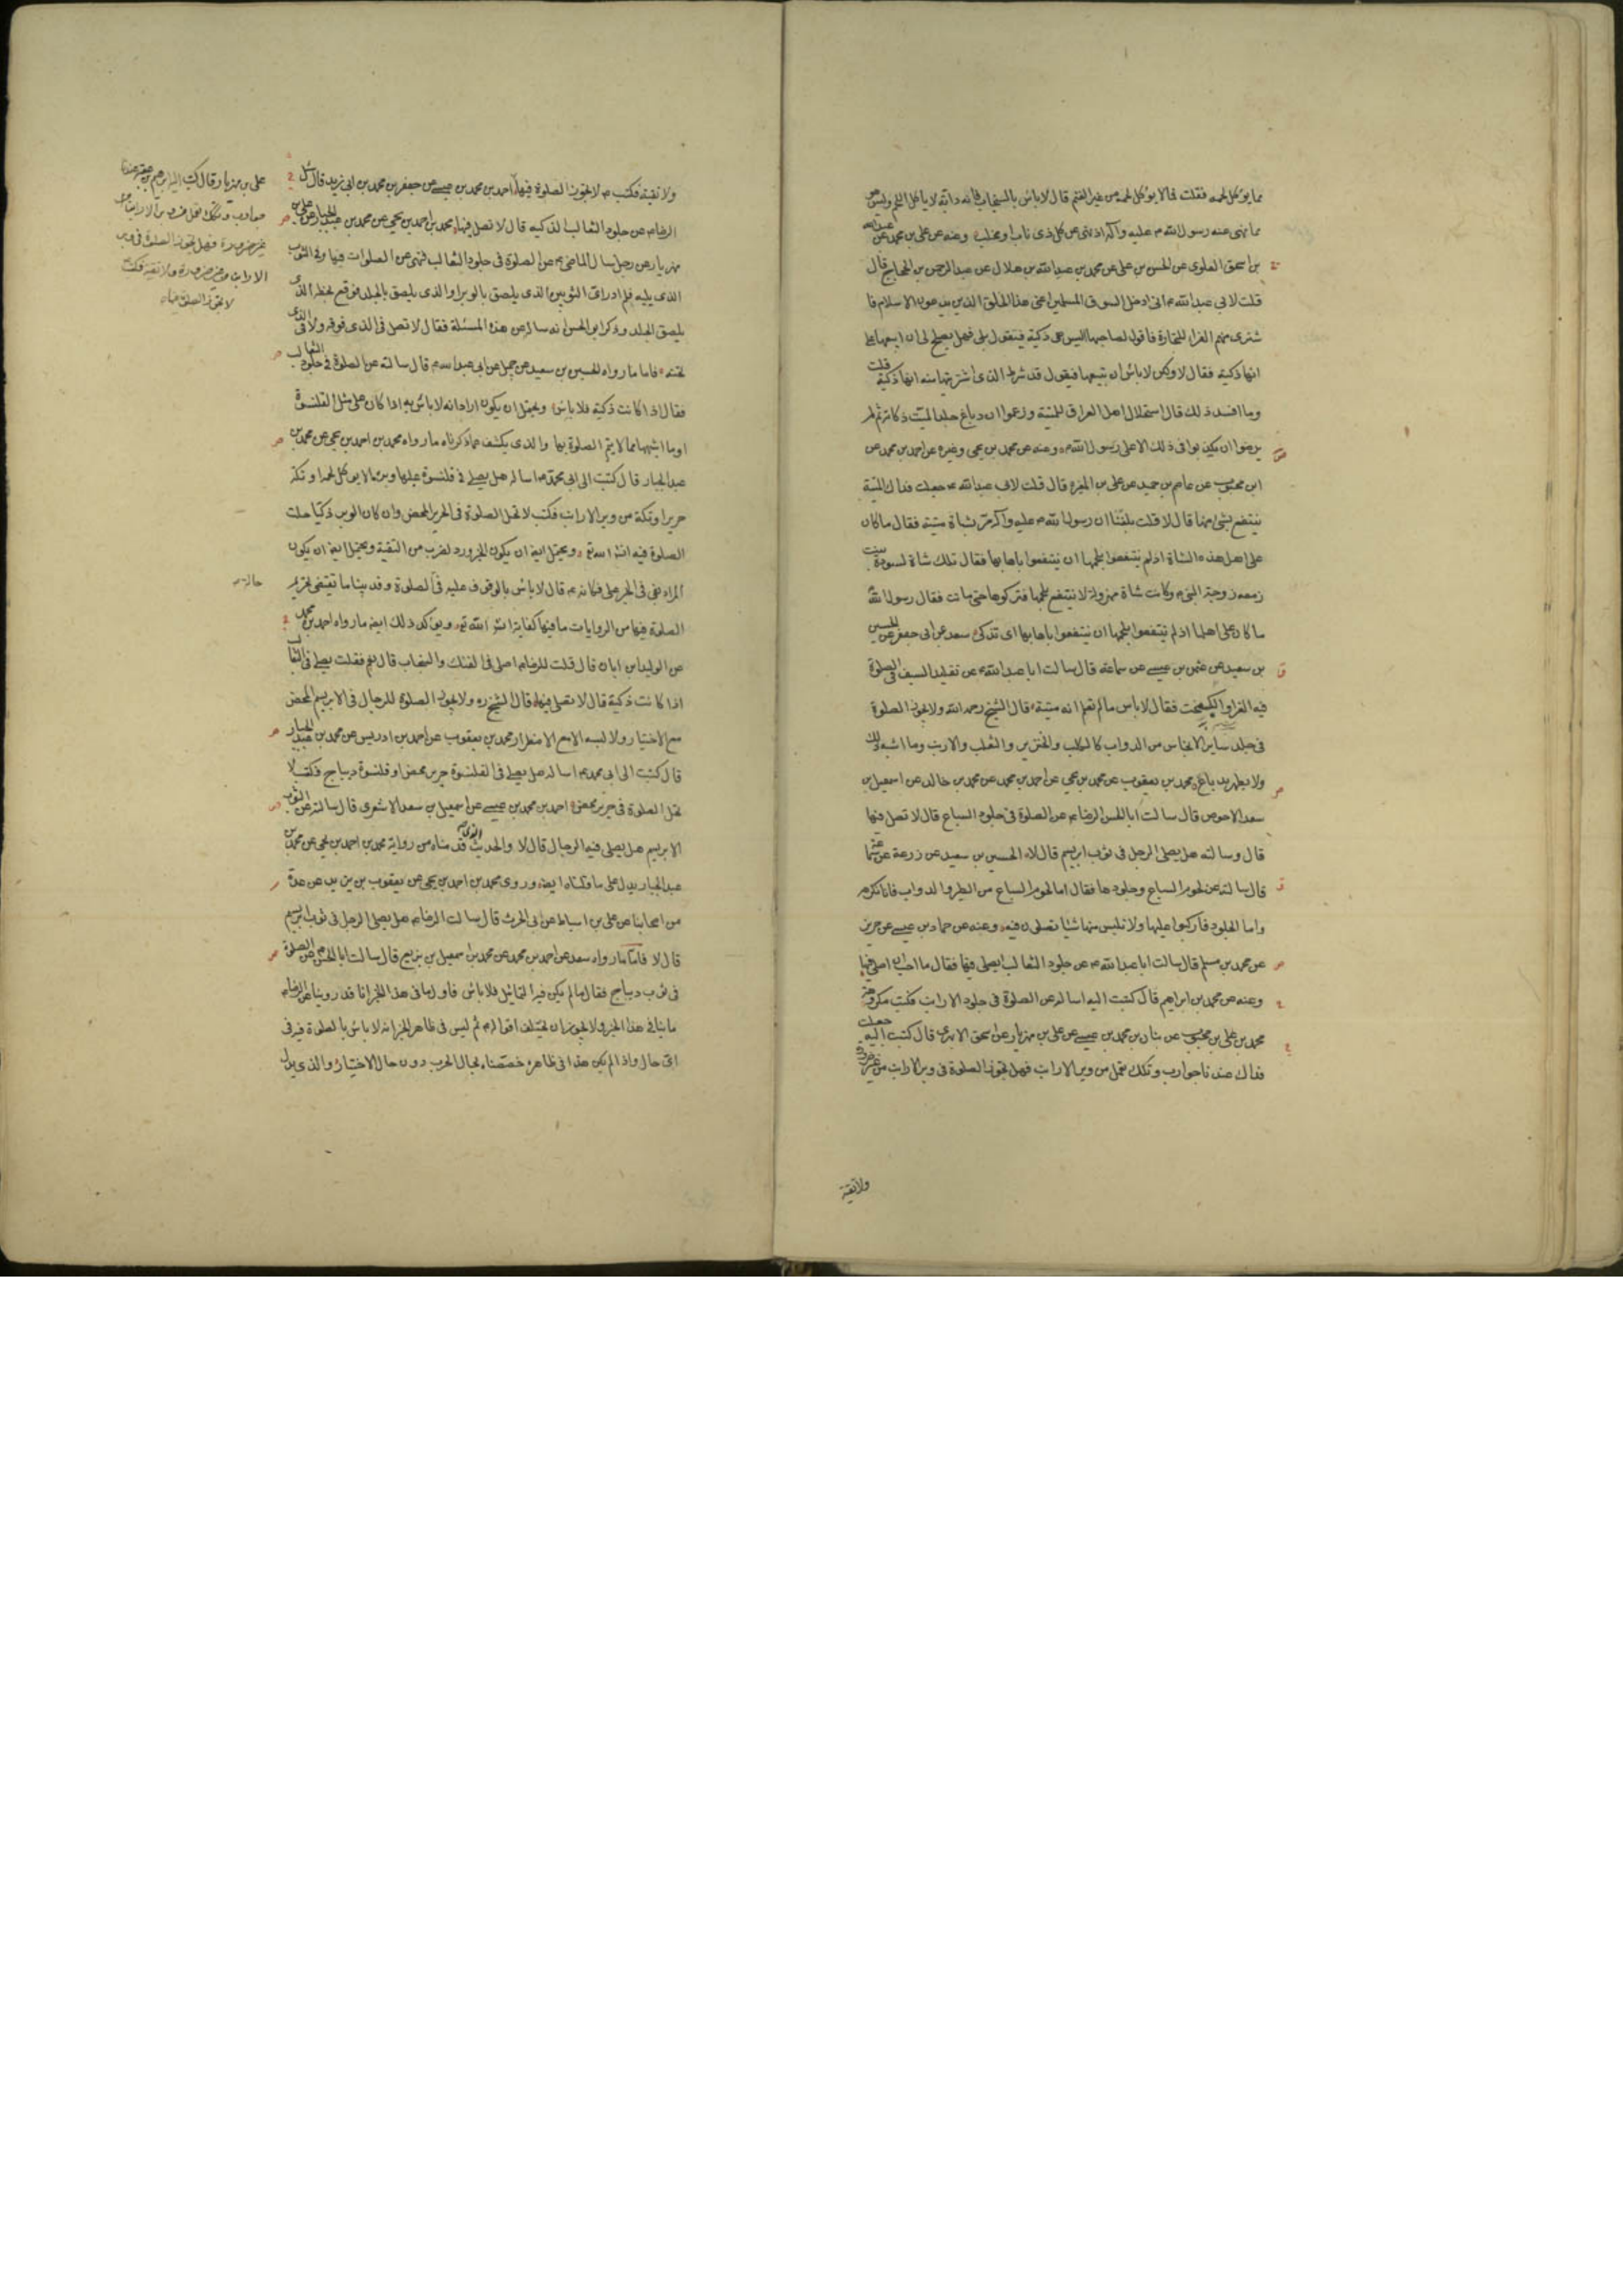 مما يؤكل لحمه فقلت فما لا يؤكل لحمه من غير الغنم قال لا باس بالسنجاب فانه دابة لا ياكل اللحم وليس هو
مما نهى عنه رسول الله ص عليه وآله اذ نهى عن كل ذى ناب او مخلب وعنه عن على بن محمد عن عبدالله
بن اسحق العلوى عن الحسن بن على عن محمد بن عبدالله بن هلال عن عبدالرحمن بن الحجاج قال
قلت لابى عبدالله ع انى ادخل السوق المسلمين اعنى هذا الخلق الذين يدعون الاسلام فا
شترى منهم الفراء للتجارة فاقول لصاحبها اليس هى ذكية فيقول بلى فهل يصلح لى ان ابيعها على
انها ذكية فقال لا ولكن لا باس ان تبيعها فيقول قد شرط الذى اشتريتها منه انها ذكية قلت
وما افسد ذلك قال استحلال اهل العراق للميتة وزعموا ان دباغ جلد الميت ذكاته ثم لم
يرضوا ان يكذبوا فى ذلك الا على رسول الله ص وعنه عن محمد بن يحيى وغيره عن احمد بن محمد عن
ابن محبوب عن عاصم بن حميد عن على بن المغيره قال قلت لابى عبدالله ع جعلت فداك الميتة
ينتفع بشئ منها قال لا قلت بلغنا ان رسول الله ص عليه وآله مر بشاة ميتة فقال ما كان
على اهل هذه الشاة اذ لم ينتفعوا بلحمها ان ينتفعوا باهابها فقال تلك شاة لسودة بنت
زمعه زوجة النبى ص وكانت شاة مهزولة لا ينتفع بلحمها فتركوها حتى ماتت فقال رسول الله
ما كان على اهلها اذ لم ينتفعوا بلحمها ان ينتفعوا باهابها اى تذكى سعد عن ابى جعفر عن الحسين
بن سعيد عن عثمن بن عيسى عن سماعة قال سالت ابا عبدالله ع عن تقليد السيف فى الصلوة
فيه الفراء والكيمخت فقال لا باس ما لم تعلم انه ميتة قال الشيخ رحمه الله ولا يجوز الصلوة
فى جلد ساير الانجاس من الدواب كالكلب والخنزير والثعلب والارنب وما اشبه ذلك
ولا يطهر بدباغ محمد بن يعقوب عن محمد بن يحيى عن احمد بن محمد عن محمد بن خالد عن اسمعيل بن
سعد الاحوص قال سالت ابا الحسن الرضا ع عن الصلوة فى جلود السباع قال لا تصل فيها
قال وسالته هل يصلى الرجل فى ثوب ابريسم قال لا الحسين بن سعيد عن زرعة عن سماعة
قال سالته عن لحوم السباع وجلودها فقال اما لحوم السباع من الطير والدواب فانا نكرهه
واما الجلود فاركبوا عليها ولا تلبس منها شيئا تصلون فيه وعنه عن حماد بن عيسى عن حريز
عن محمد بن مسلم قال سالت ابا عبدالله ع عن جلود الثعالب ايصلى فيها فقال ما احب ان اصلى فيها
وعنه عن محمد بن ابراهيم قال كتبت اليه اساله عن الصلوة فى جلود الارانب فكتب مكروهة
محمد بن على بن محبوب عن بنان بن محمد بن عيسى عن على بن مهزيار عن اسحق الابهرى قال كتبت اليه جعلت
فداك عندنا جوارب وتكك تعمل من وبر الارانب فهل تجوز الصلوة فى وبر الارانب من غير ضرورة
ولا تقية
ولا تقية فكتب ع لا تجوز الصلوة فيها احمد بن محمد بن عيسى عن جعفر بن محمد بن ابى زيد قال سئل
الرضا ع عن جلود الثعالب الذكية قال لا تصل فيها محمد بن احمد بن يحيى عن محمد بن عبد الجبار عن على بن
مهزيار عن رجل سال الماضى ع عن الصلوة فى جلود الثعالب فنهى عن الصلوات فيها وفى الثوب
الذى يليه فلم ادر اى الثوبين الذى يلصق بالوبر او الذى يلصق بالجلد فوقع بخطه الذى
يلصق الجلد وذكر ابو الحسن انه ساله عن هذه المسئلة فقال لا تصل فى الذى فوقه ولا فى الذى
تحته فاما ما رواه الحسين بن سعيد عن جميل عن ابى عبدالله ع قال سالته عن الصلوة فى جلود الثعالب
فقال اذا كانت ذكية فلا باس ويحتمل ان يكون اراد انه لا باس به اذا كان على مثل القلنسوة
او ما اشبهها مما لا يتم الصلوة بها والذى يكشف عما ذكرناه ما رواه محمد بن احمد بن يحيى عن محمد بن
عبد الجبار قال كتبت الى ابى محمد ع اساله هل يصلى فى قلنسوة عليها وبر ما لا يوكل لحمه او تكة
حرير او تكة من وبر الارانب فكتب لا تحل الصلوة فى الحرير المحض وان كان الوبر ذكيا حلت
الصلوة فيه انشاءالله تع ويحتمل ايضا ان يكون الخبر ورد لضرب من التقية ويحتمل ايضا ان يكون
المراد بفى فى الخبر على فكانه ع قال لا باس بالوقوف عليه فى الصلوة وقد بينا ما تقتضى تحريم
حال
الصلوة فيها من الروايات ما فيها كفاية انشاء الله تع ويؤكد ذلك ايضا ما رواه احمد بن محمد
عن الوليد بن ابان قال قلت للرضا ع اصلى فى الفنك والسنجاب قال نعم فقلت يصلى فى الثعالب
اذا كانت ذكية قال لا تصل فيها قال الشيخ ره ولا يجوز الصلوة للرجال فى الابريسم المحض
مع الاختيار ولا لبسه الا مع الاضطرار محمد بن يعقوب عن احمد بن ادريس عن محمد بن عبد الجبار
قال كتبت الى ابى محمد ع اساله هل يصلى فى القلنسوة حرير محض او قلنسوة ديباج فكتب لا
تحل الصلوة فى حرير محض احمد بن محمد بن عيسى عن اسمعيل بن سعد الاشعرى قال سالته عن الثوب
الابريسم هل يصلى فيه الرجال قال لا والحديث الذى قدمناه من رواية محمد بن احمد بن يحيى عن محمد بن
عبد الجبار يدل على ما قلناه ايضا وروى محمد بن احمد بن يحيى عن يعقوب بن يزيد عن عدة
من اصحابنا عن على بن اسباط عن ابى الحرث قال سالت الرضا ع هل يصلى الرجل فى ثوب ابريسم
قال لا فاما ما رواه سعد عن احمد بن محمد عن محمد بن اسمعيل بن بزيع قال سالت ابا الحسن ع عن الصلوة
فى ثوب ديباج فقال ما لم يكن فيه التماثيل فلا باس فاول ما فى هذا الخبر انا قد روينا عن الرضا ع
ما ينافى هذا الخبر ولا يجوز ان تختلف اقواله ع ثم ليس فى ظاهر الخبر انه لا باس بالصلوة فيه فى
اى حال واذا لم يكن هذا فى ظاهره خصصناه بحال الحرب دون حال الاختيار والذى يدل
على بن مهزيار قال كتب اليه ابرهيم بن عقبة عندنا
جوارب وتكك تعمل من وبر الارانب
غير ضرورة فهل تجوز الصلوة فى وبر
الارانب من غير ضرورة ولا تقية فكتب
لا تجوز الصلوة فيها